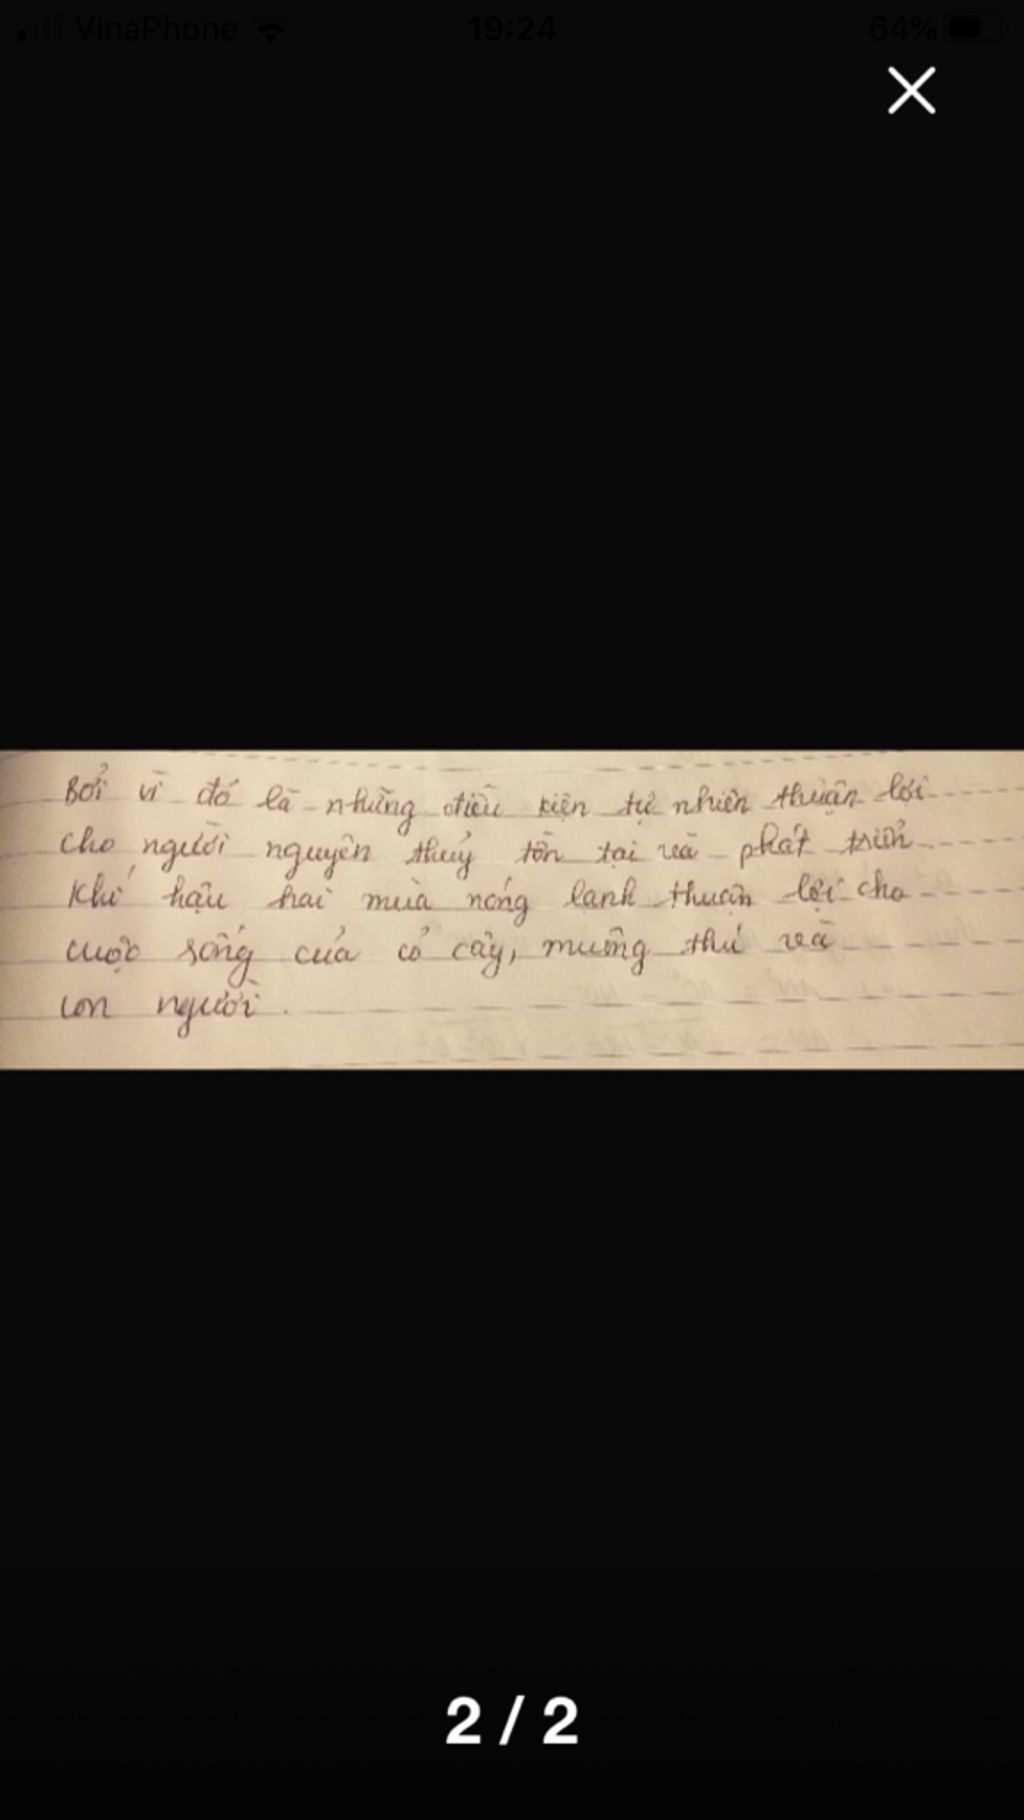 VinaPhone 19:24 64%
Bởi vì đó là những điều kiện tự nhiên thuận lợi
cho người nguyên thuỷ tồn tại và phát triển
Khí hậu hai mùa nóng lạnh thuận lợi cho
cuộc sống của cỏ cây, muông thú và
con người.
2 / 2